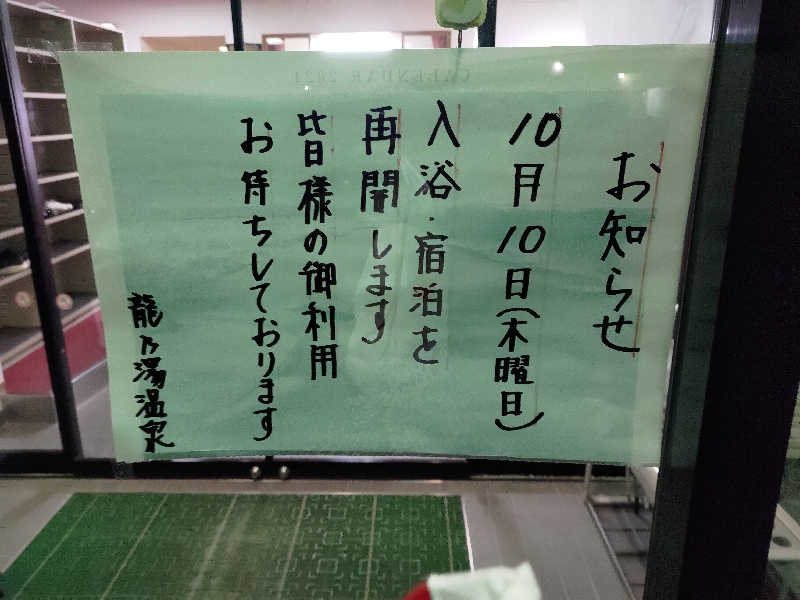 お知らせ
10月10日(木曜日)
入浴・宿泊を
再開します
皆様の御利用
お待ちしております
龍乃湯温泉
CALENDAR 2021